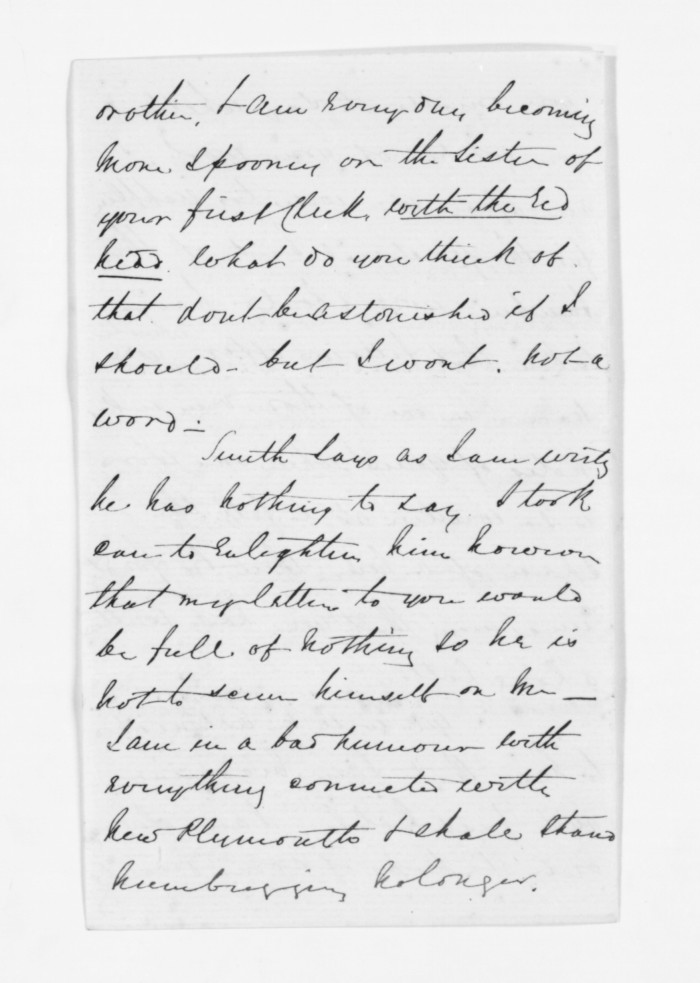 or other, & am every day becoming
more spooney on the sister of
your first Cheek. with the red
head. What do you think of
that. dont be astonished if I
should - but I wont. not a
word -
Smith says as I am writg
he has nothing to say. I took
care to enlighten him however
that my letter to you would
be full of nothing so he is
not to screw himself on me -
I am in a bad humour with
everything connected with
New Plymouth & shall stand
humbugging no longer.